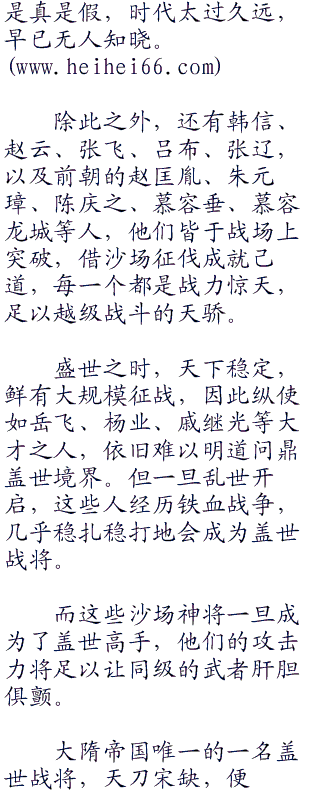 是真是假，时代太过久远，
早已无人知晓。
(www.heihei66.com)
除此之外，还有韩信、
赵云、张飞、吕布、张辽，
以及前朝的赵匡胤、朱元
璋、陈庆之、慕容垂、慕容
龙城等人，他们皆于战场上
突破，借沙场征伐成就己
道，每一个都是战力惊天，
足以越级战斗的天骄。
盛世之时，天下稳定，
鲜有大规模征战，因此纵使
如岳飞、杨业、戚继光等大
才之人，依旧难以明道问鼎
盖世境界。但一旦乱世开
启，这些人经历铁血战争，
几乎稳扎稳打地会成为盖世
战将。
而这些沙场神将一旦成
为了盖世高手，他们的攻击
力将足以让同级的武者肝胆
俱颤。
大隋帝国唯一的一名盖
世战将，天刀宋缺，便